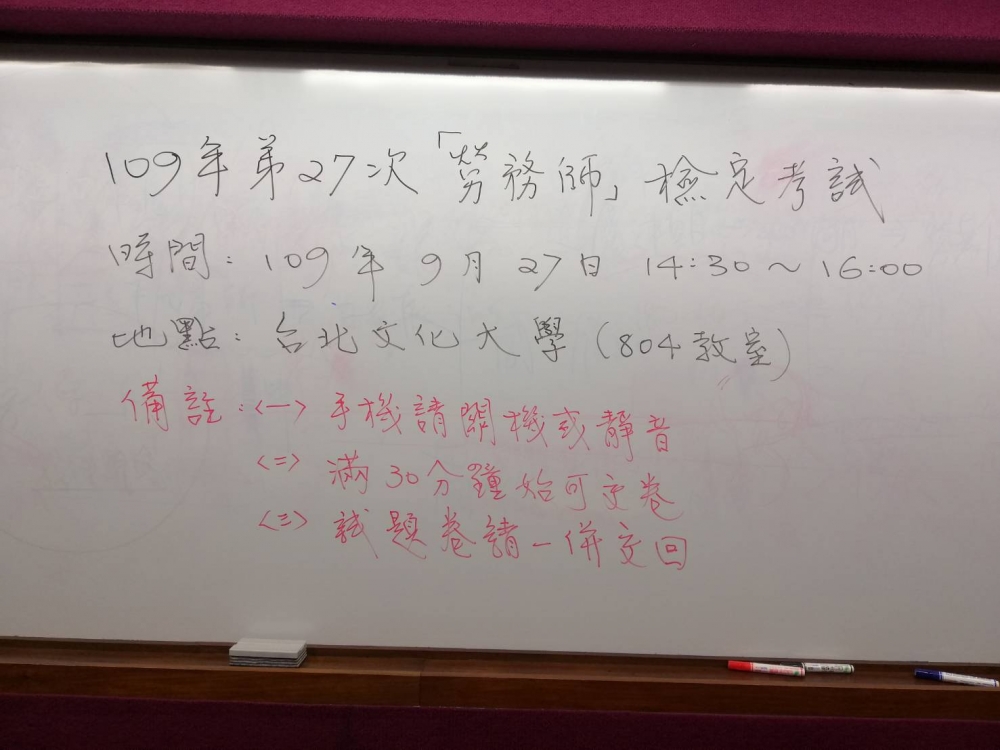 109年第27次「勞務師」檢定考試
時間：109年9月27日 14:30～16:00
地點：台北文化大學(804教室)
備註：<一>手機請關機或靜音
<二>滿30分鐘始可交卷
<三>試題卷請一併交回